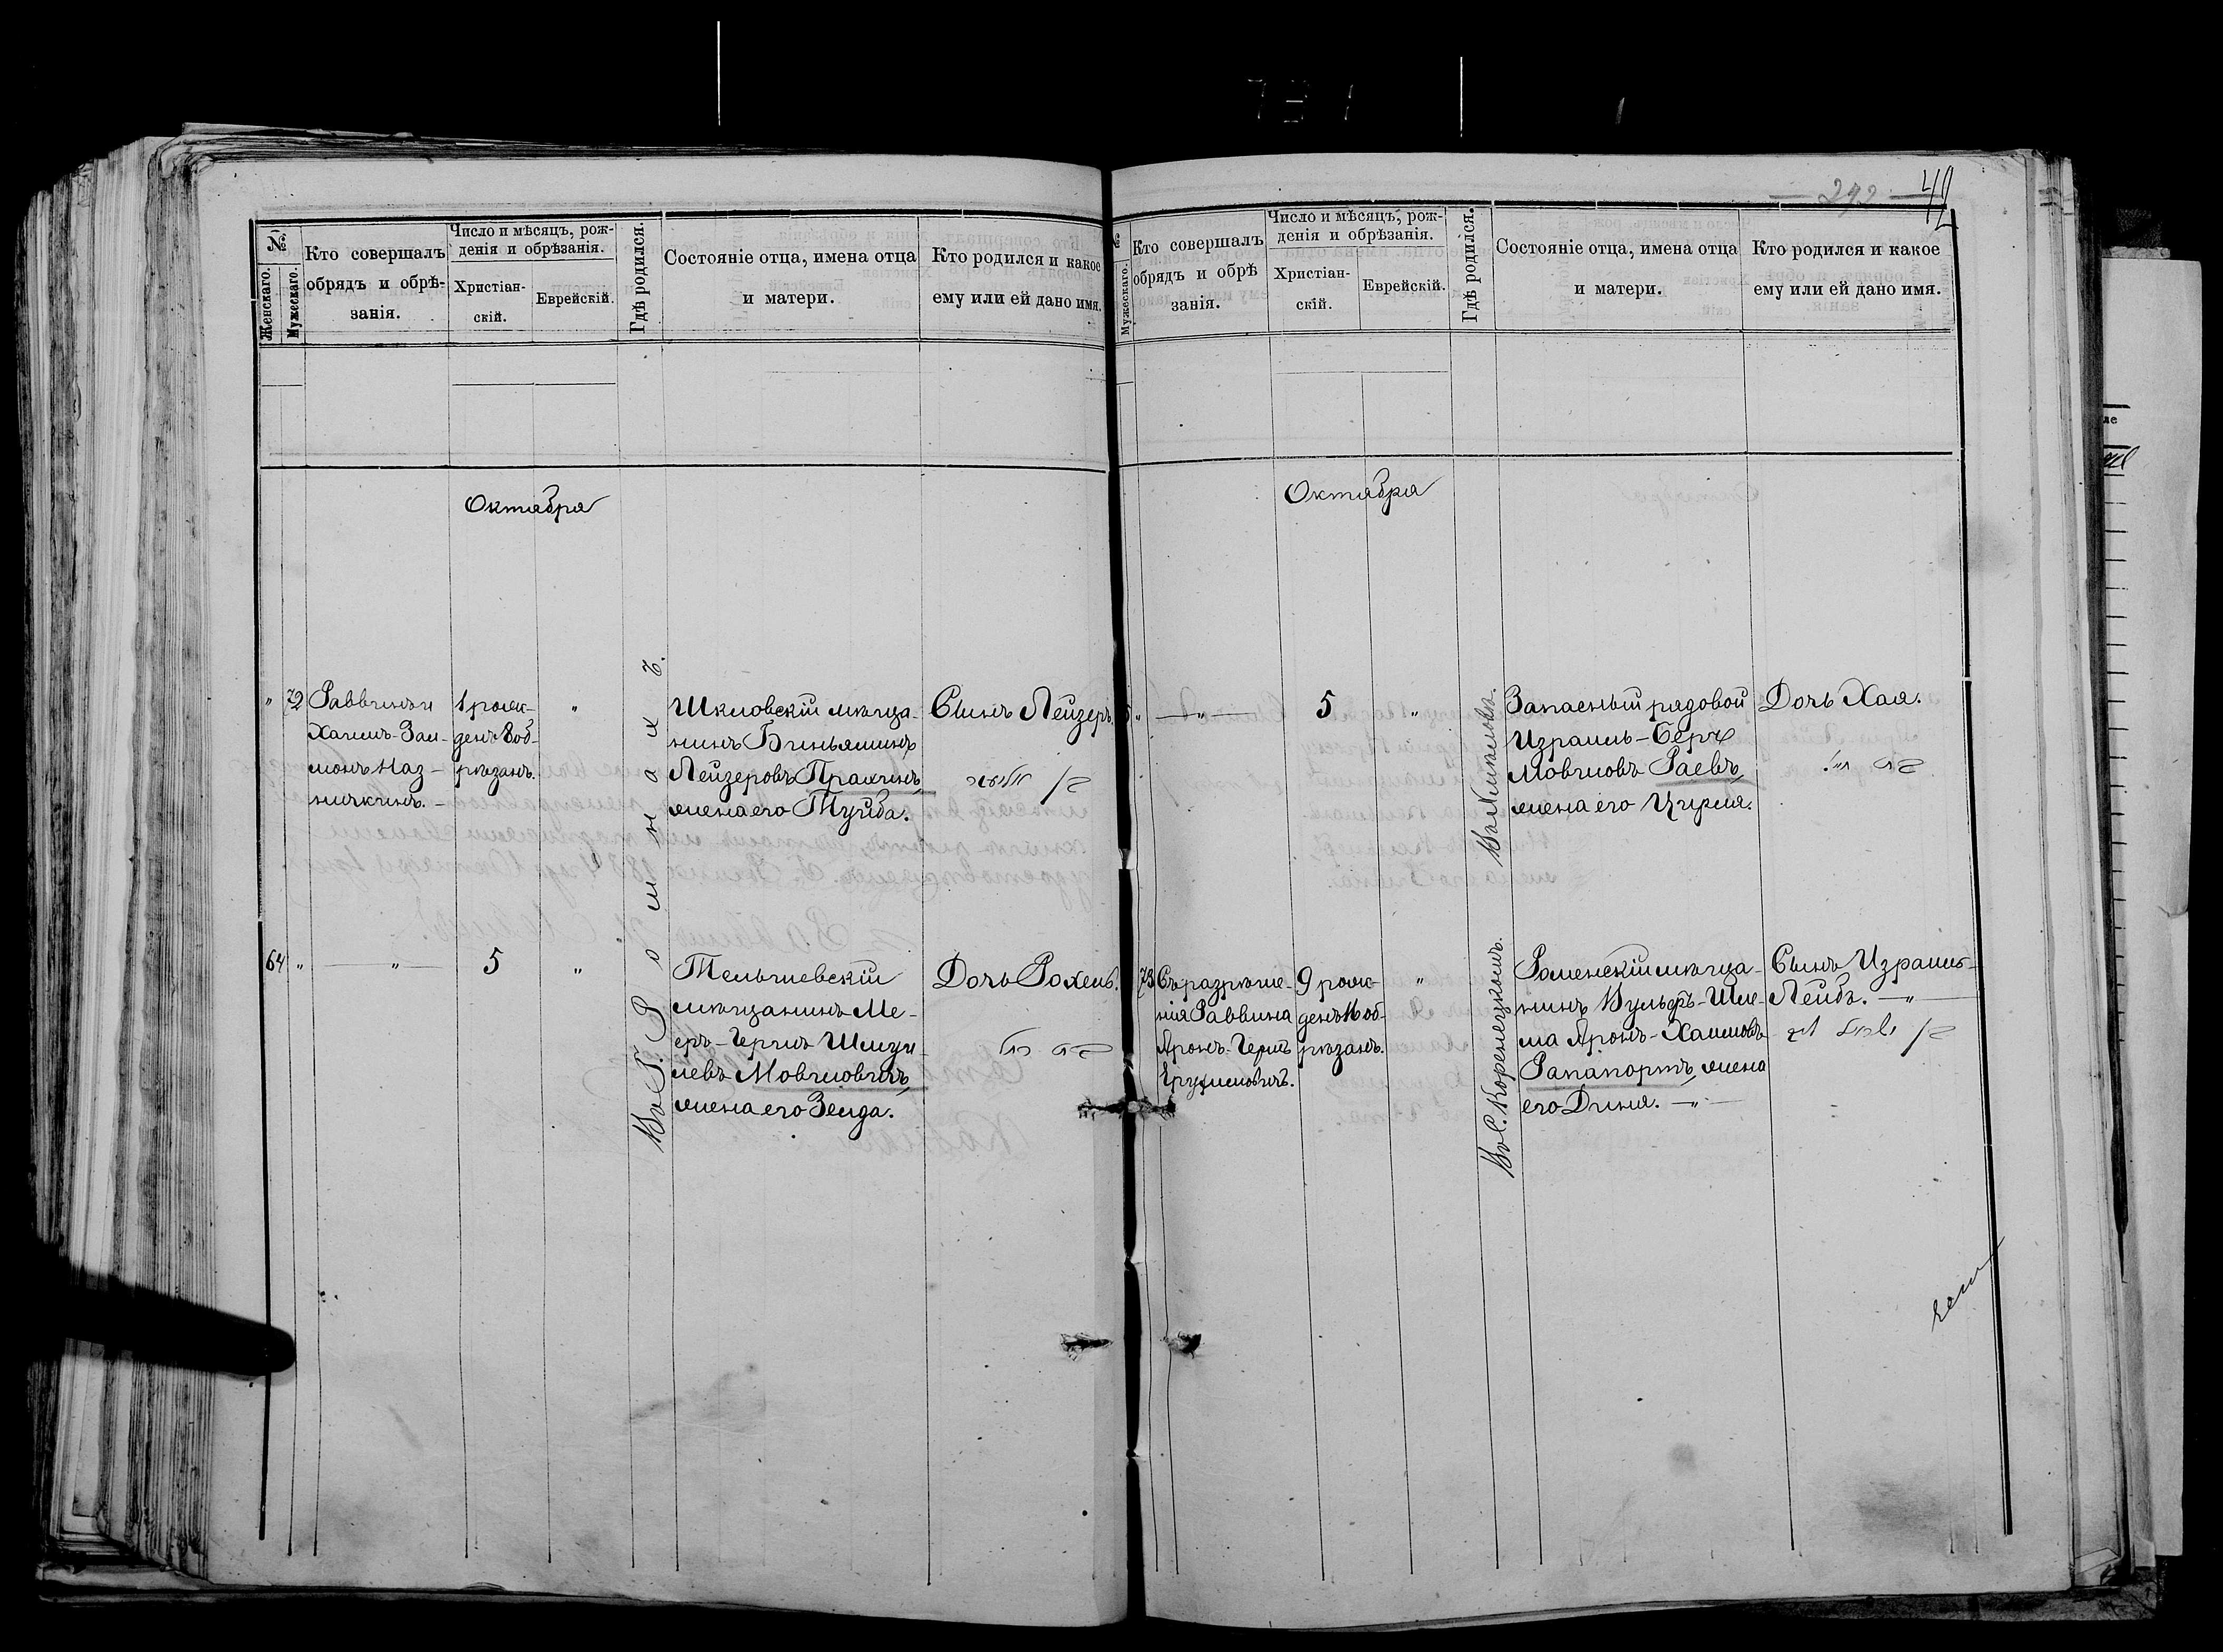 292 42
№
Женскаго.
Мужескаго.
Кто совершалъ
обрядъ и обрѣ-
занія.
Число и мѣсяцъ, рож-
денія и обрѣзанія.
Христіан-
скій.
Еврейскій.
Гдѣ родился.
Состояніе отца, имена отца
и матери.
Кто родился и какое
ему или ей дано имя.
Октября
" 72
Раввинъ
Хаимъ-Зал-
монъ Наз-
1 рож-
денъ 8 об-
рѣзанъ.
"
Шкловскій мѣща-
нинъ Биньяминъ
Лейзеровъ
жена его
Сынъ Лейзеръ.
בן אליעזר
Въ Г. Ромнахъ.
64 "
"
5
"
Тельшевскій
мѣщанинъ Ме-
еръ-Гершъ Шмуй-
левъ Мовшовичъ,
жена его Зелда.
Дочь Рохель.
בת רחל
Мужескаго.
Кто совершалъ
обрядъ и обрѣ
занія.
Число и мѣсяцъ, рож-
денія и обрѣзанія.
Христіан-
скій.
Еврейскій.
Гдѣ родился.
Состояніе отца, имена отца
и матери.
Кто родился и какое
ему или ей дано имя.
Октября
"
"
5
"
Запасный рядовой
Израиль-Беръ
Мовшовъ Раевъ,
жена его Цирля.
Дочь Хая.
בת חיי
73
Съ разрѣше-
нія Раввина
Аронъ-Гершъ
Ерухимовичъ.
9 рож-
денъ 16 об-
рѣзанъ.
"
Въ С. Коренецкомъ.
Роменскій мѣща-
нинъ Вульфъ-Шле-
ма Аронъ-Хаимовъ
Рапапортъ, жена
его Диня. — " —
Сынъ Израиль-
Лейбъ. — " —
בן ישראל ליב